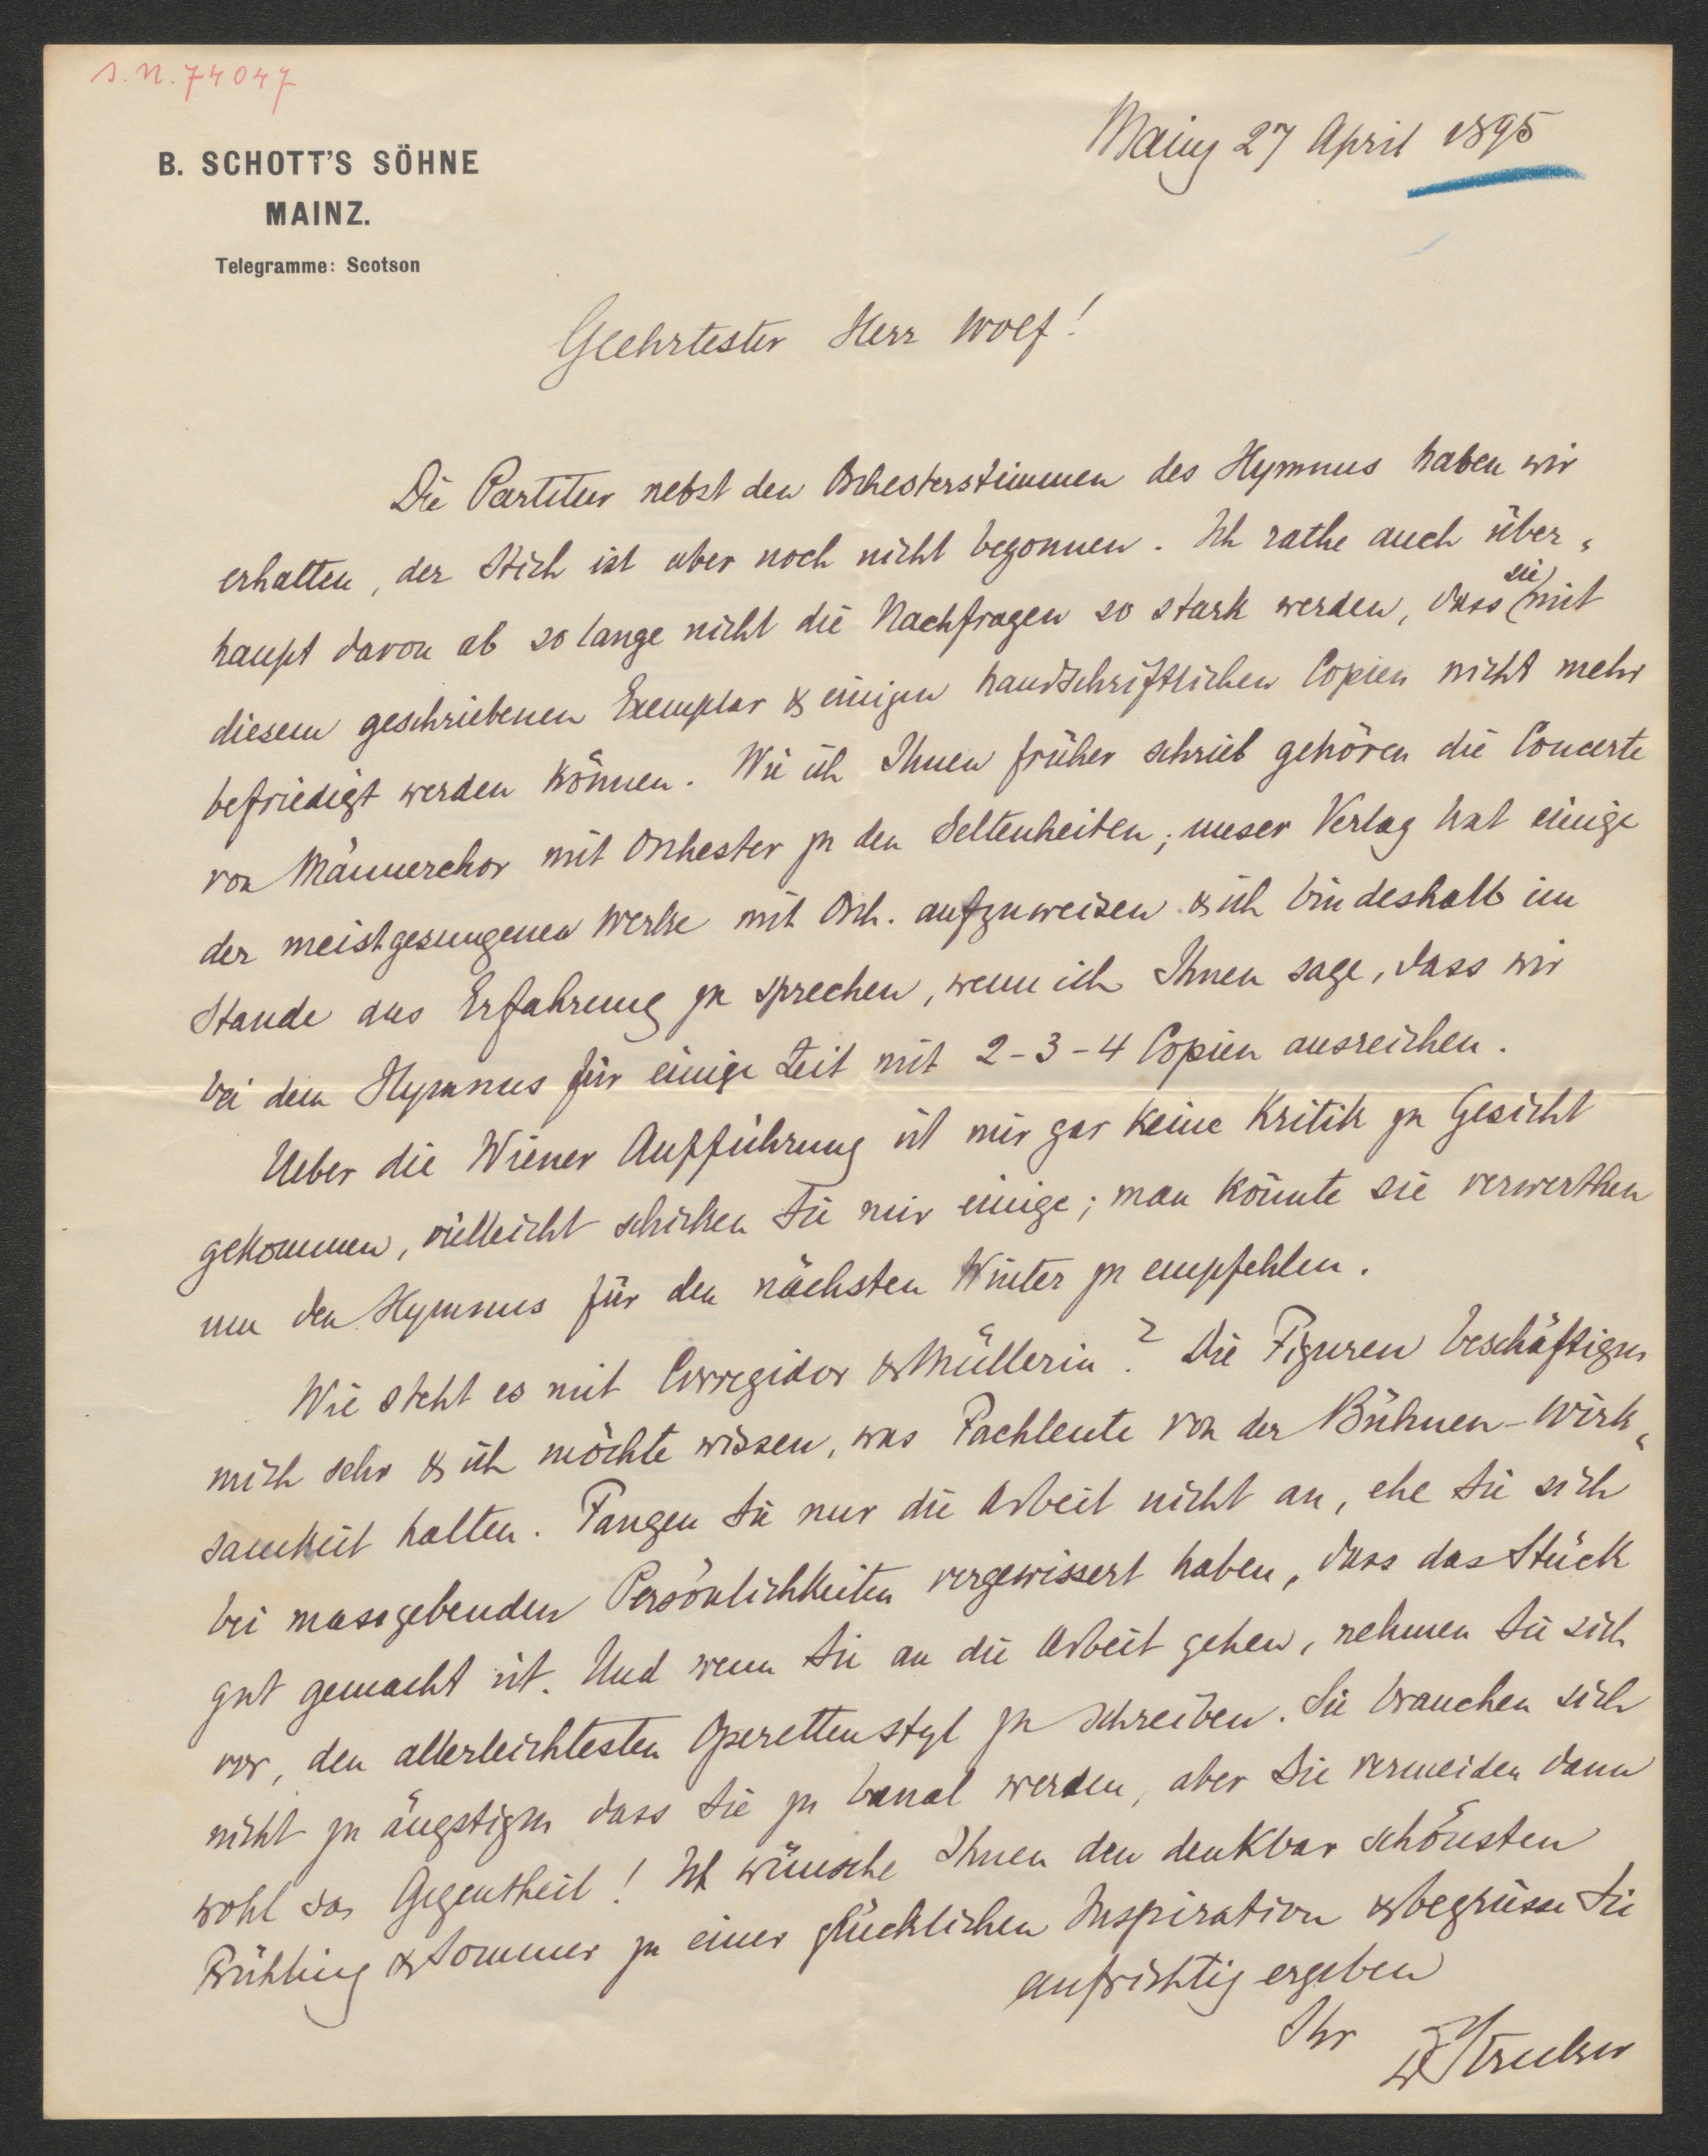 I.N. 74047
B. SCHOTT'S SÖHNE
MAINZ.
Telegramme: Scotson
Mainz 27 April 1895
Geehrtester Herr Wolf!
Die Partitur nebst den Orchesterstimmen des Hymnus haben wir
erhalten, der Stich ist aber noch nicht begonnen. Ich rathe auch über-
haupt davon ab so lange nicht die Nachfragen so stark werden, dass sie mit
diesem geschriebenen Exemplar & einigen handschriftlichen Copien nicht mehr
befriedigt werden können. Wie ich Ihnen früher schrieb gehören die Concerte
von Männerchor mit Orchester zu den Seltenheiten; unser Verlag hat einige
der meistgesungenen Werke mit Orch. aufzuweisen & ich bin deshalb im
Stande aus Erfahrung zu sprechen, wenn ich Ihnen sage, dass wir
bei dem Hymnus für einige Zeit mit 2-3-4 Copien ausreichen.
Ueber die Wiener Aufführung ist mir gar keine Kritik zu Gesicht
gekommen, vielleicht schicken Sie mir einige; man könnte sie verwerthen
um den Hymnus für den nächsten Winter zu empfehlen.
Wie steht es mit Corregidor & Müllerin? Die Figuren beschäftigen
mich sehr & ich möchte wissen, was Fachleute von der Bühnen-Wirk-
samkeit halten. Fangen Sie nur die Arbeit nicht an, ehe Sie sich
bei massgebenden Persönlichkeiten vergewissert haben, dass das Stück
gut gemacht ist. Und wenn Sie an die Arbeit gehen, nehmen Sie sich
vor, den allerleichtesten Operettenstyl zu schreiben. Sie brauchen sich
nicht zu ängstigen dass Sie zu banal werden, aber Sie vermeiden dann
wohl das Gegentheil! Ich wünsche Ihnen den denkbar schönsten
Frühling & Sommer zu einer glücklichen Inspiration & begrüsse Sie
aufrichtig ergeben
Ihr
Dr Strecker